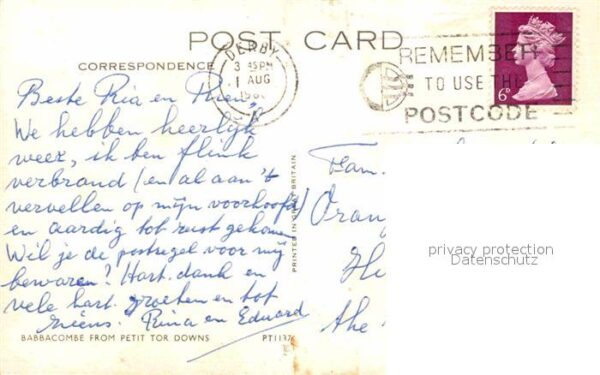 POST CARD
CORRESPONDENCE
DERBY
3 45PM
1 AUG
REMEMBER
TO USE THE
POSTCODE
6D
Beste Ria en Rien,
We hebben heerlijk
weer, ik ben flink
verbrand (en al aan 't
vervellen op mijn voorhoofd)
en aardig tot rust gekomen
Wil je de postzegel voor mij
bewaren? Hart. dank en
vele hart. groeten en tot
ziens. Rina en Eduard
PRINTED IN GREAT BRITAIN
Fam.
Oran
the
privacy protection
Datenschutz
BABBACOMBE FROM PETIT TOR DOWNS
PT11376